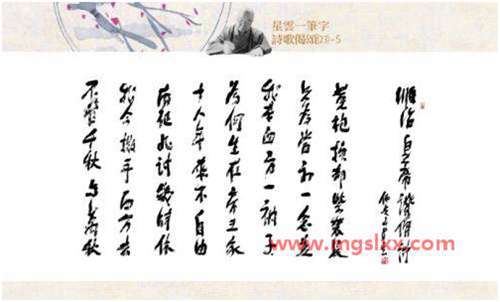 星雲一筆字
詩歌偈頌(23)-5
順治皇帝讚僧
黃袍換却紫袈裟
只為當初一念差
我本西方一衲子
為何生在帝王家
十八年來不自由
南征北討幾時休
我今撒手西方去
不管千秋與萬秋
www.mgslxx.com